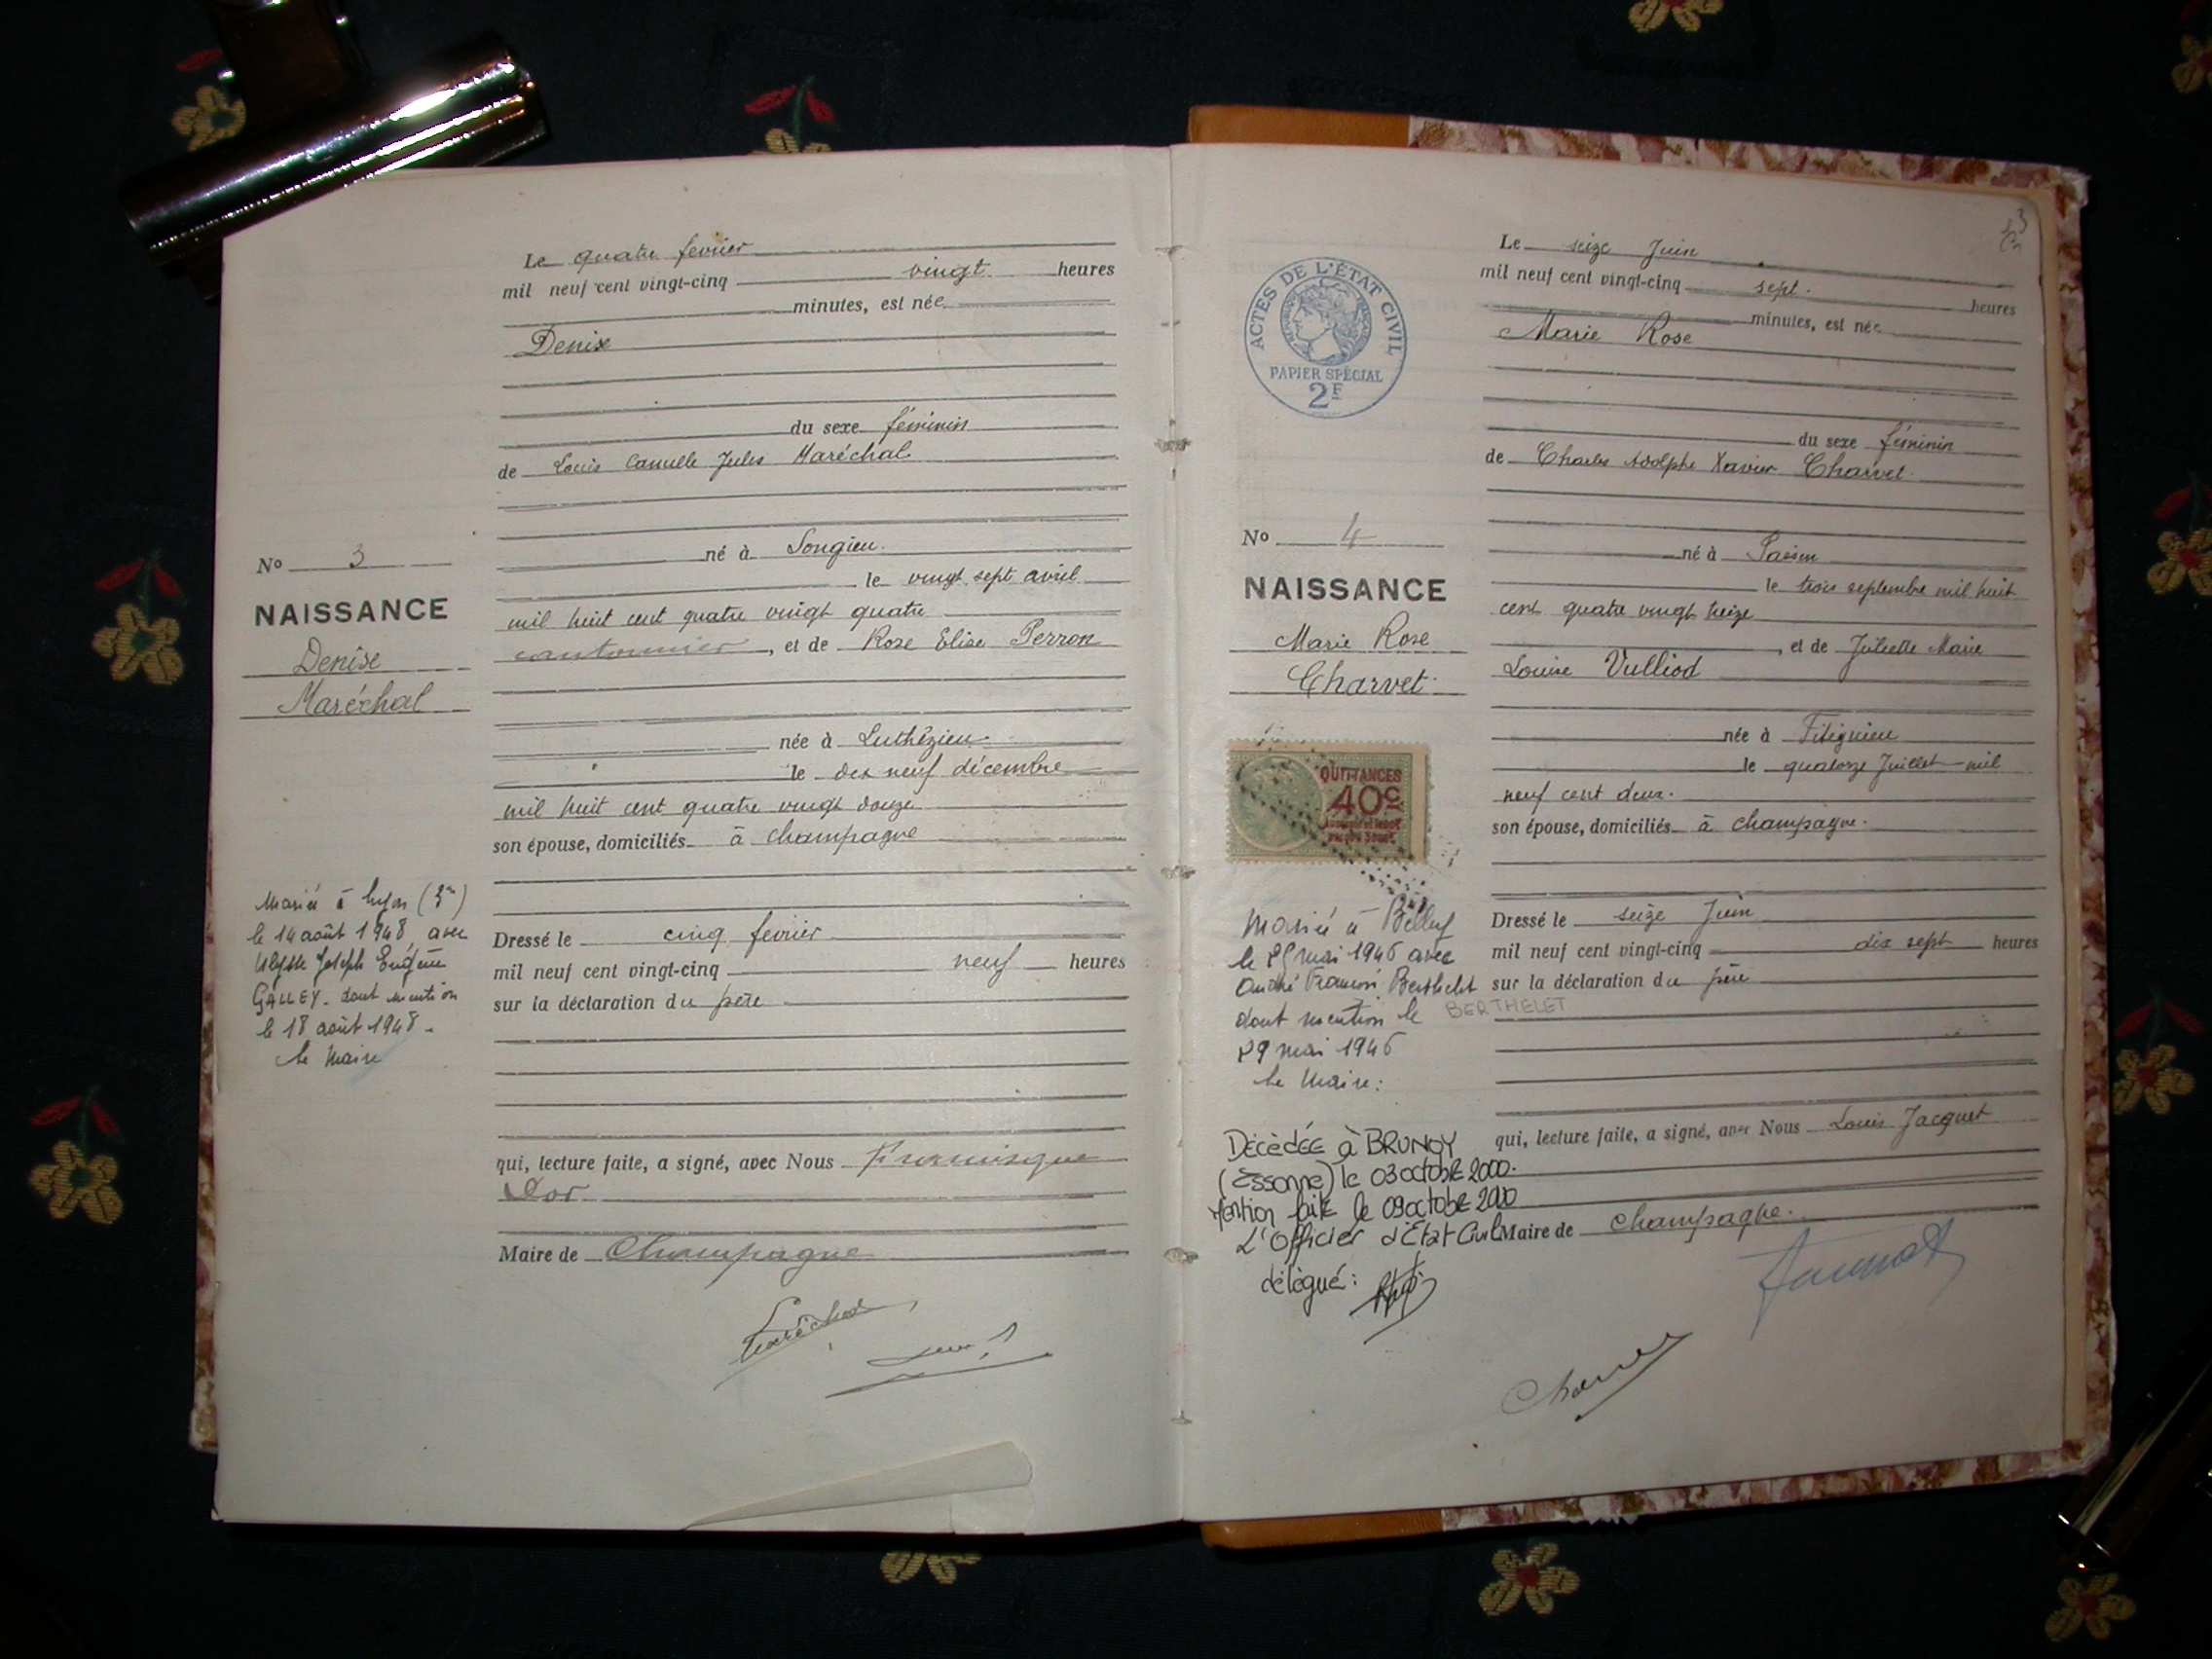 Le quatre février
mil neuf cent vingt-cinq vingt heures
minutes, est née
Denise
du sexe féminin
de Louis Camille Jules Maréchal
né à Songieu.
le vingt sept avril
mil huit cent quatre vingt quatre
cantonnier, et de Rose Elise Perron
née à Luthézieu
le dix neuf décembre
mil huit cent quatre vingt douze
son épouse, domiciliés à Champagne
Dressé le cinq février
mil neuf cent vingt-cinq neuf heures
sur la déclaration du père
qui, lecture faite, a signé, avec Nous
Maire de Champagne
Maréchal
No 3
NAISSANCE
Denise
Maréchal
Mariée à Lyon (3e)
le 14 août 1948, avec
Ulysse Joseph Eugène
GALLEY. dont mention
le 18 août 1948.
Le Maire
3
Le seize Juin
mil neuf cent vingt-cinq sept. heures
minutes, est née
Marie Rose
du sexe féminin
de Charles Adolphe Xavier Charvet.
né à
le trois septembre mil huit
cent quatre vingt treize
, et de Juliette Marie
Louise Vulliod
née à Fitignieu
le quatorze Juillet mil
neuf cent deux.
son épouse, domiciliés à Champagne.
Dressé le seize Juin
mil neuf cent vingt-cinq dix sept heures
sur la déclaration du père
qui, lecture faite, a signé, avec Nous Louis Jacquet
Maire de Champagne.
ACTES DE L'ÉTAT CIVIL
RÉPUBLIQUE FRANÇAISE
PAPIER SPÉCIAL
2F
No 4
NAISSANCE
Marie Rose
Charvet.
QUITTANCES
40c
Mariée à Belley
le 25 mai 1946 avec
André François Berthelet
BERTHELET
dont mention le
29 mai 1946
Le Maire:
DÉCÉDÉE à BRUNOY
(Essonne) le 03 octobre 2000.
Mention faite le 09 octobre 2000
L'Officier d'État Civil
délégué: